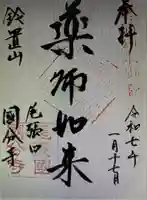 奉拝
令和七年
一月十七日
薬師如来
鈴置山
尾張
國分寺